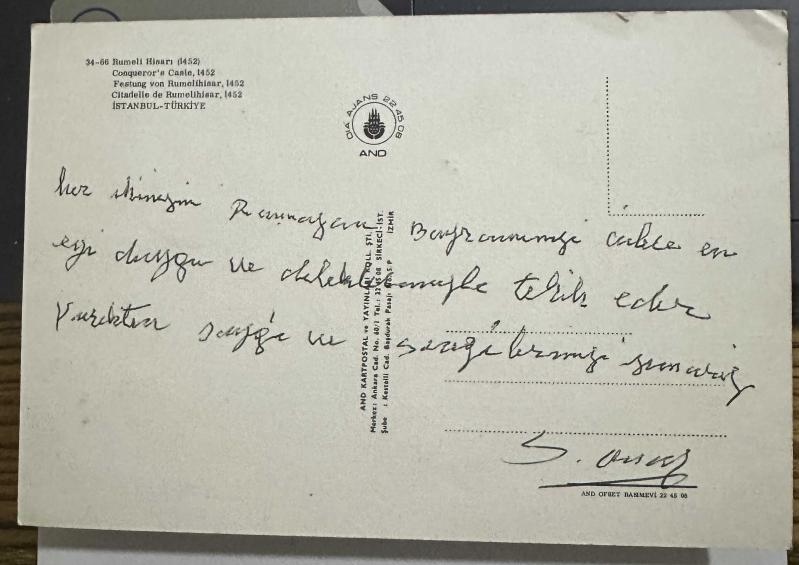 34-66 Rumeli Hisarı (1452)
Conqueror's Casle, 1452
Festung von Rumelihisar, 1452
Citadelle de Rumelihisar, 1452
İSTANBUL-TÜRKİYE
DIA AJANS 22 45 08
AND
her ikinizin Ramazan Bayramınızi candan en
eyi duygu ve dileklerimizle tebrik eder
Yürekten saygı ve sevgilerimizi sunarız
S.
AND KARTPOSTAL ve YAYINLARI KOLL. ŞTİ.
Merkez: Ankara Cad. No. 60/1 Tel.: 22 45 08 SİRKECİ-İST.
Şube : Kestelli Cad. Başdurak Pasajı İZMİR
AND OFSET BASIMEVİ 22 45 08